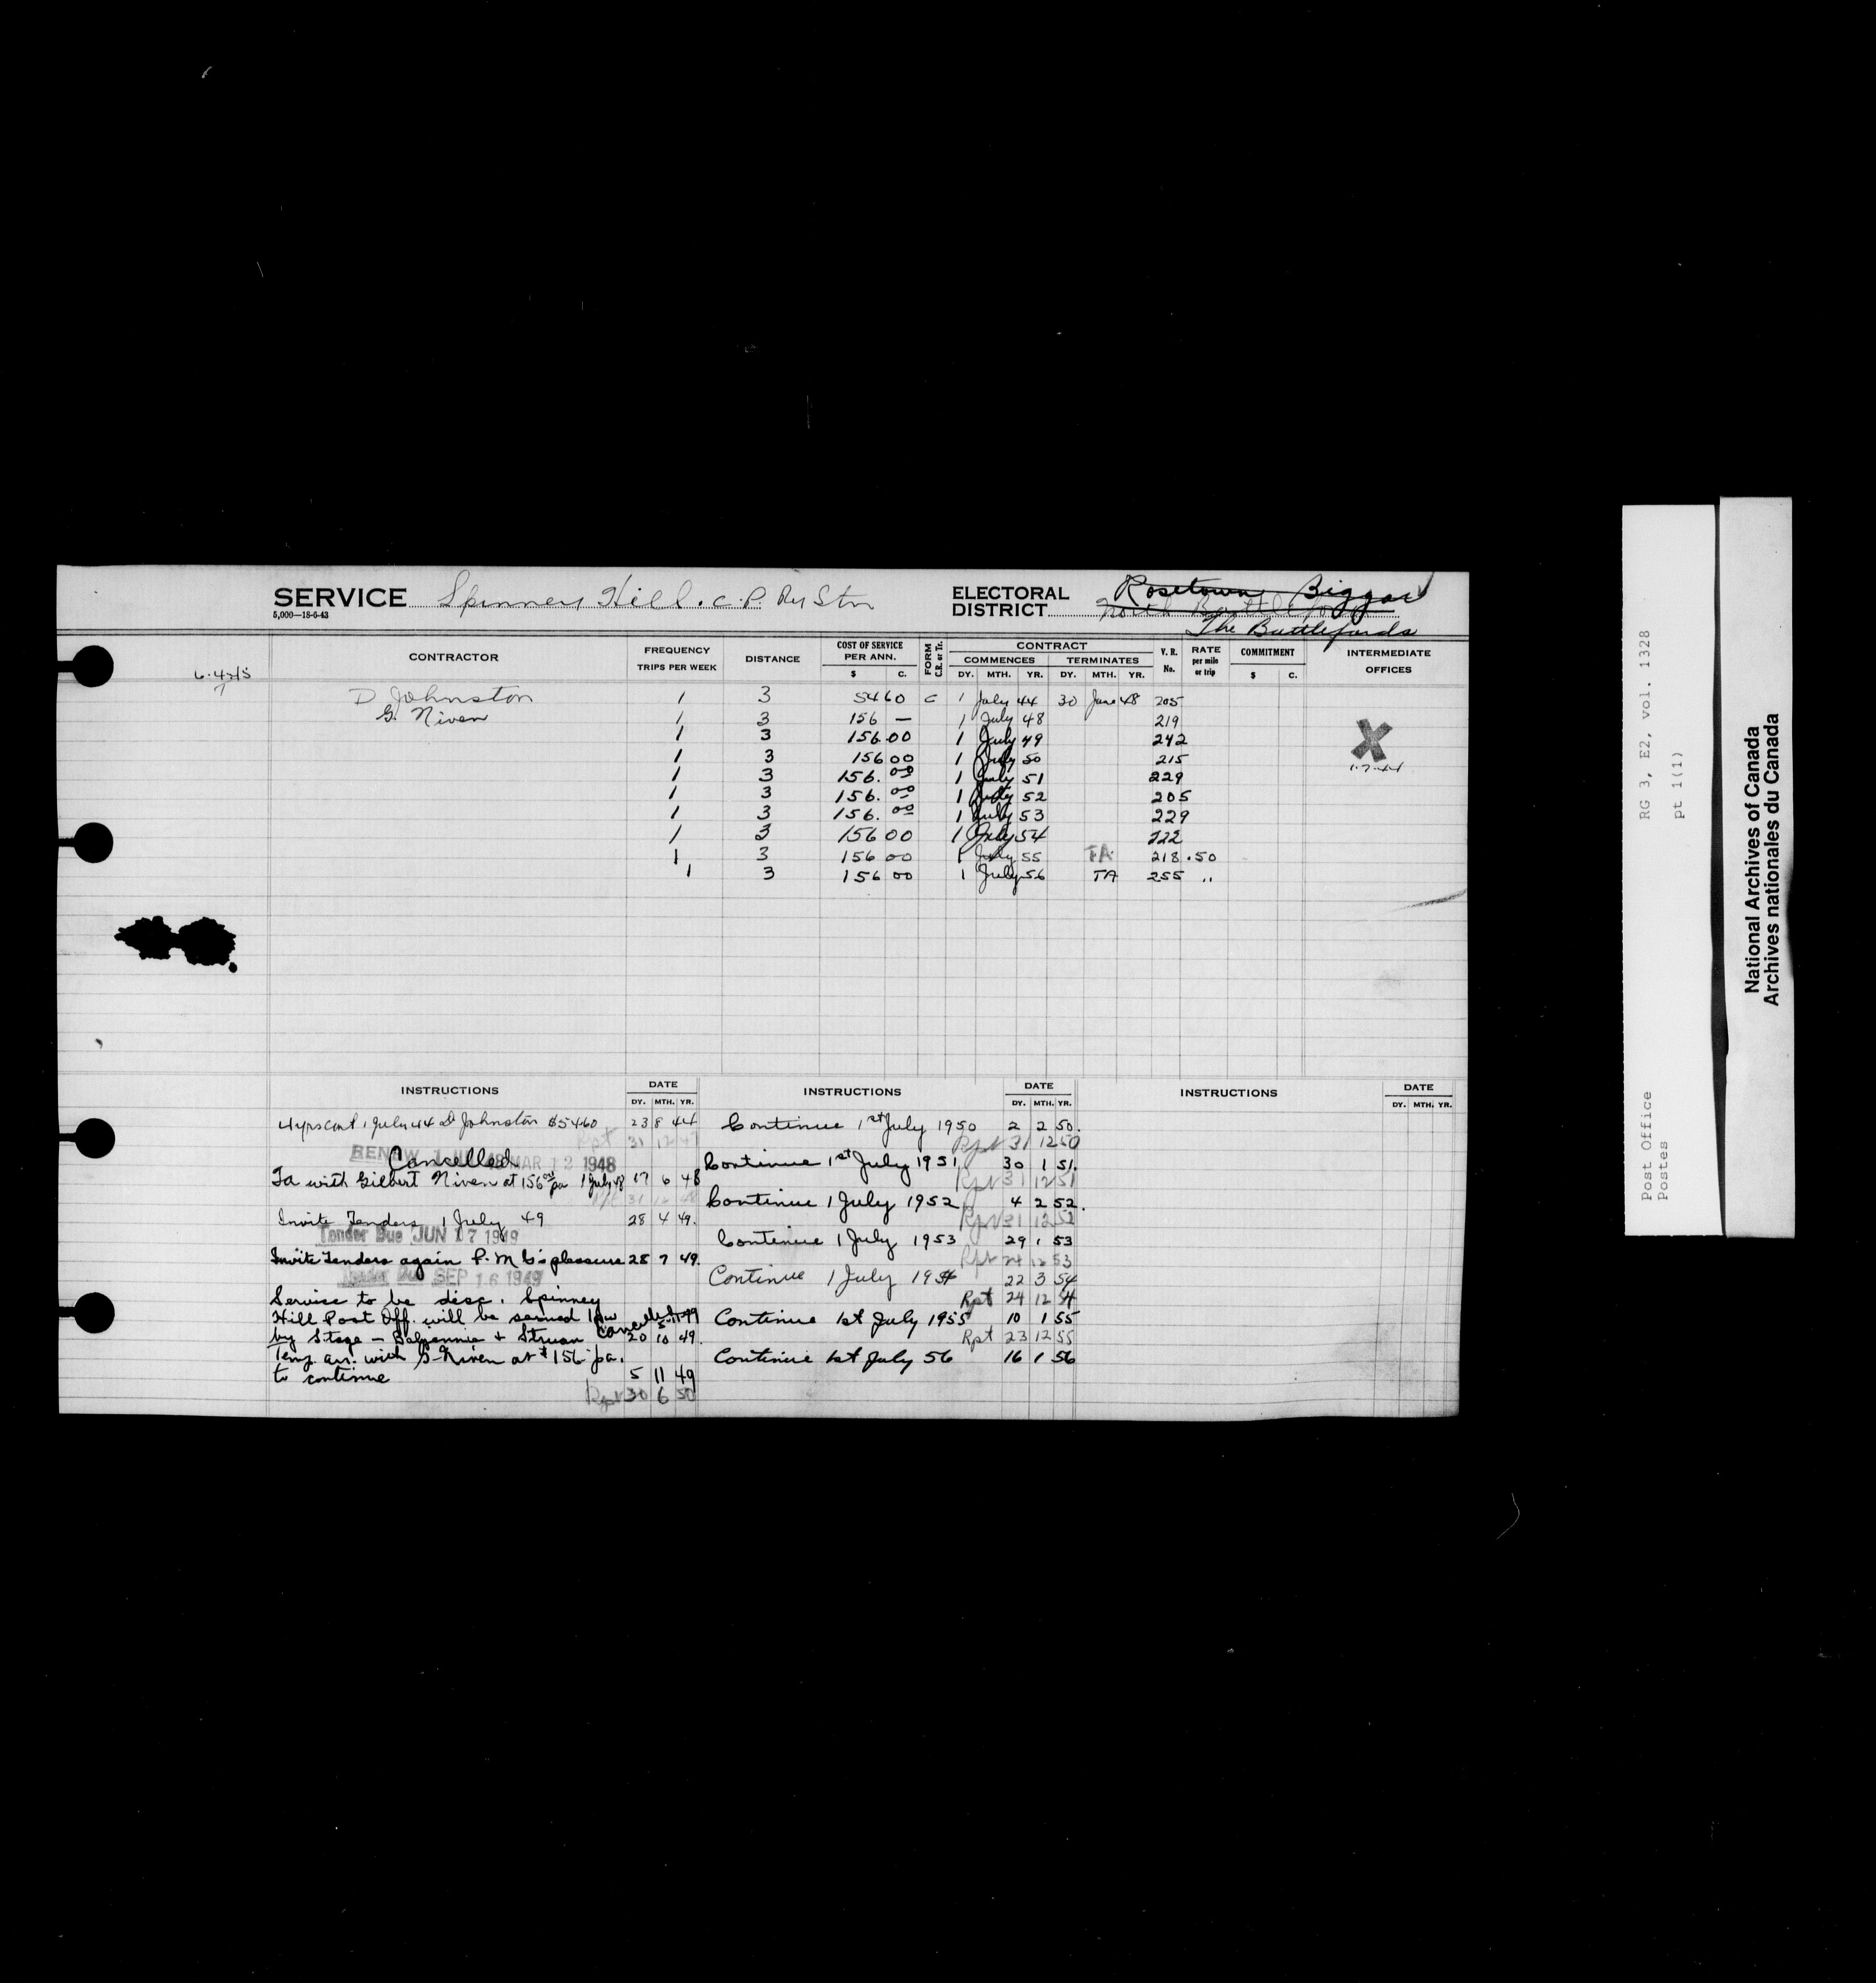 SERVICE Spinney Hill. C. P. Ry Stn
5,000—18-6-43
ELECTORAL DISTRICT Rosetown Biggar
North Battleford
The Battlefords
CONTRACTOR FREQUENCY TRIPS PER WEEK DISTANCE COST OF SERVICE PER ANN. $ C. FORM C.R. or Tr. CONTRACT COMMENCES DY. MTH. YR. TERMINATES DY. MTH. YR. V. R. No. RATE per mile or trip COMMITMENT $ C. INTERMEDIATE OFFICES
D Johnston 1 3 54 60 C 1 July 44 30 June 48 205
G. Niven 1 3 156 — 1 July 48 219
1 3 156 00 1 July 49 242
X
1 3 156 00 1 July 50 215
1-7-44
1 3 156. 00 1 July 51 229
1 3 156. 00 1 July 52 205
1 3 156. 00 1 July 53 229
1 3 156 00 1 July 54 222
1 3 156 00 1 July 55 TA 218 .50
1 3 156 00 1 July 56 TA 255 "
INSTRUCTIONS DATE DY. MTH. YR.
4 yrs cont 1 July 44 D Johnston $54.60 23 8 44
Rpt 31 12 47
RENEW MAR 12 1948
Cancelled
Ta with Gilbert Niven at 156 00 pa 1 July 48 17 6 48
31 12 48
Invite Tenders 1 July 49 28 4 49.
Tender Due JUN 17 1949
Invite tenders again P. M G's pleasure 28 7 49.
Tender Due SEP 16 1949
Service to be disc. Spinney
Hill Post Off. will be served
by Stage — Baljennie + Struan Cancelled 20 10 49.
Temp. arr. with G. Niven at $156 pa.
to continue 5 11 49
Rpt 30 6 50
INSTRUCTIONS DATE DY. MTH. YR.
Continue 1st July 1950 2 2 50.
Rpt 31 12 50
Continue 1st July 1951 30 1 51.
Rpt 31 12 51
Continue 1 July 1952 4 2 52.
Rpt 31 12 52
Continue 1 July 1953 29 1 53
Rpt 24 12 53
Continue 1 July 1954 22 3 54
Rpt 24 12 54
Continue 1st July 1955 10 1 55
Rpt 23 12 55
Continue 1st July 56 16 1 56
INSTRUCTIONS DATE DY. MTH. YR.
Post Office
Postes
RG 3, E2, vol. 1328
pt 1(1)
National Archives of Canada
Archives nationales du Canada